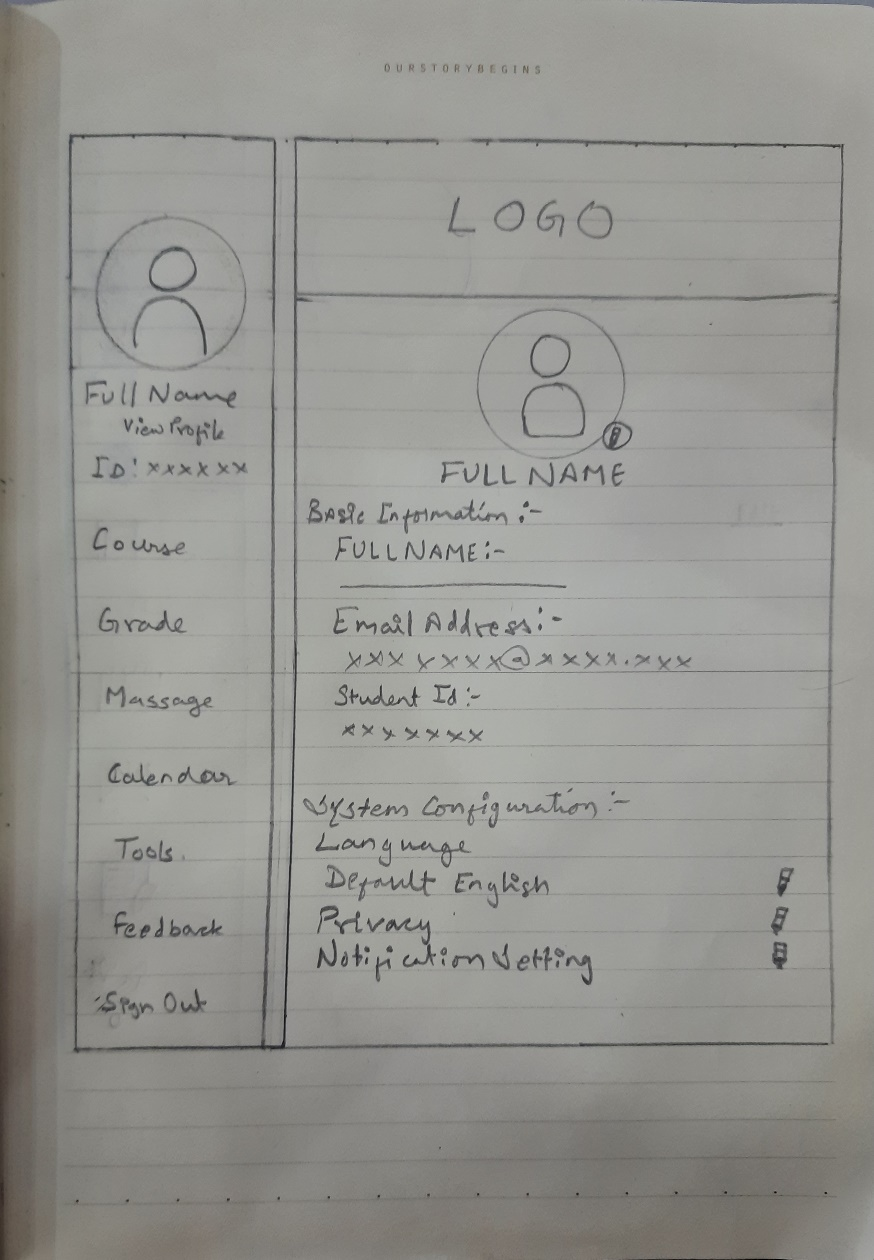 OURSTORYBEGINS
Full Name
View Profile
ID: xxxxxx
Course
Grade
Massage
Calendar
Tools.
Feedback
Sign Out
LOGO
FULL NAME
Basic Information :-
FULL NAME :-
Email Address :-
xxxxxxx@xxxx.xxx
Student Id :-
xxxxxxx
System Configuration :-
Language
Default English
Privacy
Notification Setting